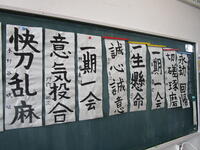 快刀乱麻
意気投合
一期一会
誠心誠意
一生懸命
一期一会
切磋琢磨